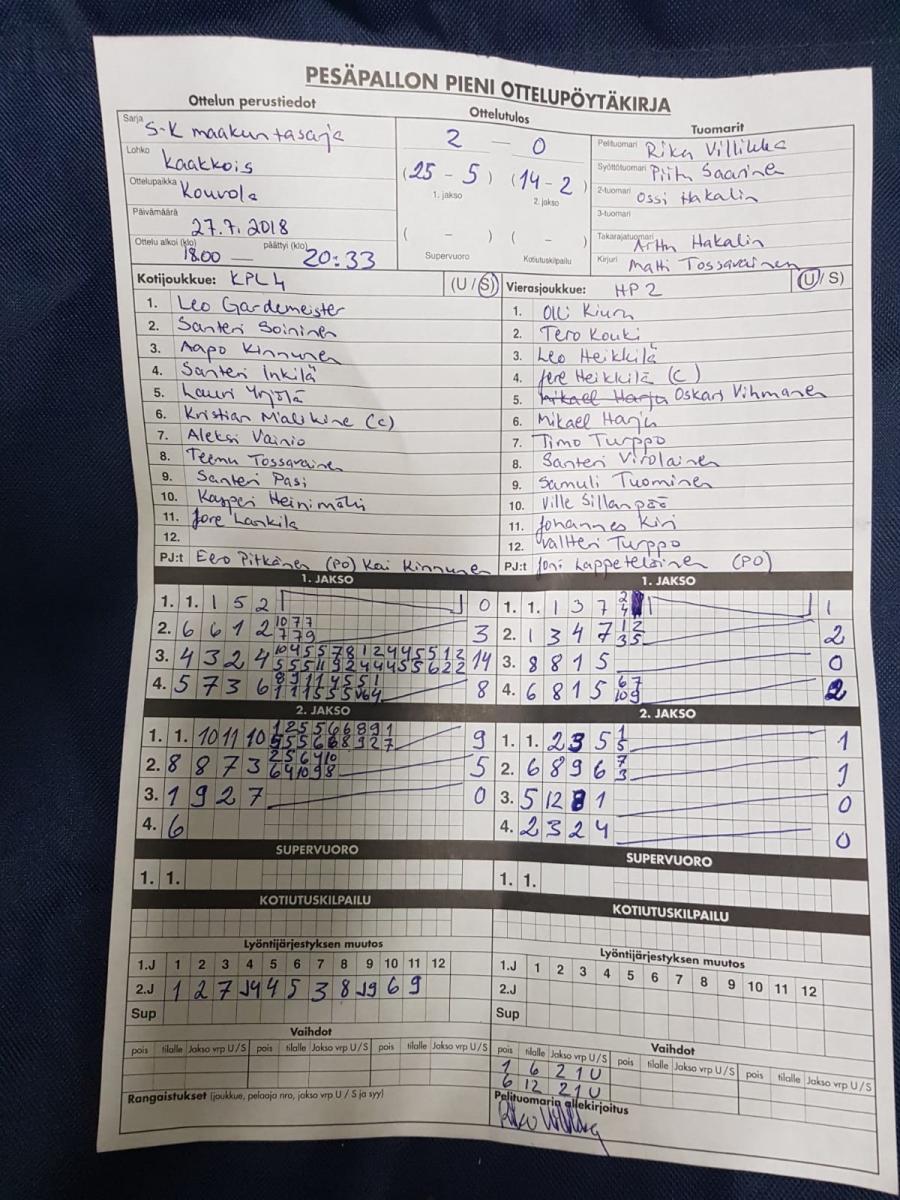 PESÄPALLON PIENI OTTELUPÖYTÄKIRJA
Ottelun perustiedot
Ottelutulos
Tuomarit
Sarja S-K maakuntasarja
Lohko Kaakkois
Ottelupaikka Kouvola
Päivämäärä 27.7.2018
Ottelu alkoi (klo) 18.00 — päättyi (klo) 20:33
2 — 0
(25 - 5) (14 - 2)
1. jakso 2. jakso
( - ) ( - )
Supervuoro Kotiutuskilpailu
Pelituomari
Syöttötuomari Saarinen
2-tuomari Ossi Hakalin
3-tuomari
Takarajatuomari Hakalin
Kirjuri Matti Tossavainen
Kotijoukkue: KPL 4 (U / S)
1. Leo Gardemeister
2. Santeri Soininen
3. Aapo Kinnunen
4. Santeri Inkilä
5. Lauri Yrjölä
6. Kristian (c)
7. Aleksi Vainio
8. Teemu Tossavainen
9. Santeri Pasi
10. Kasperi Heinimäki
11. Jere Lankila
12.
PJ:t Eero Pitkänen (PO) Kai Kinnunen
Vierasjoukkue: HP 2 (U / S)
1. Olli Kiuru
2. Tero Kouki
3. Leo Heikkilä
4. Jere Heikkilä (C)
5. Mikael Harju Oskari Vihmanen
6. Mikael Harju
7. Timo Turppo
8. Santeri Virolainen
9. Samuli Tuominen
10. Ville Sillanpää
11. Johannes Kiri
12. Valtteri Turppo
PJ:t Joni Lappeteläinen (PO)
1. JAKSO
1. 1. 1 5 2 0
2. 6 6 1 2 10 7 7 7 7 9 3
3. 4 3 2 4 14
4. 5 7 3 6 8
1. JAKSO
1. 1. 1 3 7 2 4 1
2. 1 3 4 7 1 2 3 5 2
3. 8 8 1 5 0
4. 6 8 1 5 6 7 10 9 2
2. JAKSO
1. 1. 10 11 10 9
2. 8 8 7 3 2 5 6 4 10 6 4 10 9 8 5
3. 1 9 2 7 0
4. 6
2. JAKSO
1. 1. 2 3 5 1 5 1
2. 6 8 9 6 7 3 1
3. 5 12 8 1 0
4. 2 3 2 4 0
SUPERVUORO
1. 1.
SUPERVUORO
1. 1.
KOTIUTUSKILPAILU
KOTIUTUSKILPAILU
Lyöntijärjestyksen muutos
1.J 1 2 3 4 5 6 7 8 9 10 11 12
2.J 1 2 7 4 5 3 8 6 9
Sup
Lyöntijärjestyksen muutos
1.J 1 2 3 4 5 6 7 8 9 10 11 12
2.J
Sup
Vaihdot
pois tilalle Jakso vrp U / S pois tilalle Jakso vrp U / S pois tilalle Jakso vrp U / S
Vaihdot
pois tilalle Jakso vrp U / S pois tilalle Jakso vrp U / S pois tilalle Jakso vrp U / S
1 6 2 1 U
6 12 2 1 U
Rangaistukset (joukkue, pelaaja nro, jakso vrp U / S ja syy)
Pelituomarin allekirjoitus